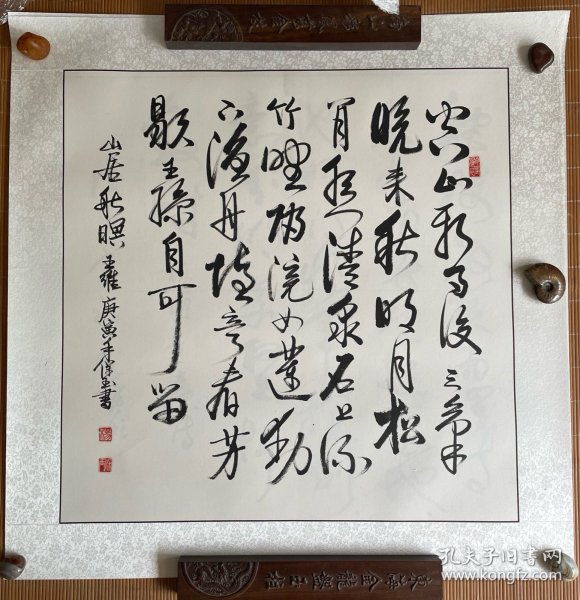 空山新雨後天氣
晚来秋明月松
间照清泉石上流
竹喧歸浣女蓮動
下漁舟随意春芳
歇王孫自可留
山居秋暝 王維 庚寅年保玉書
孔夫子旧书网
www.kongfz.com